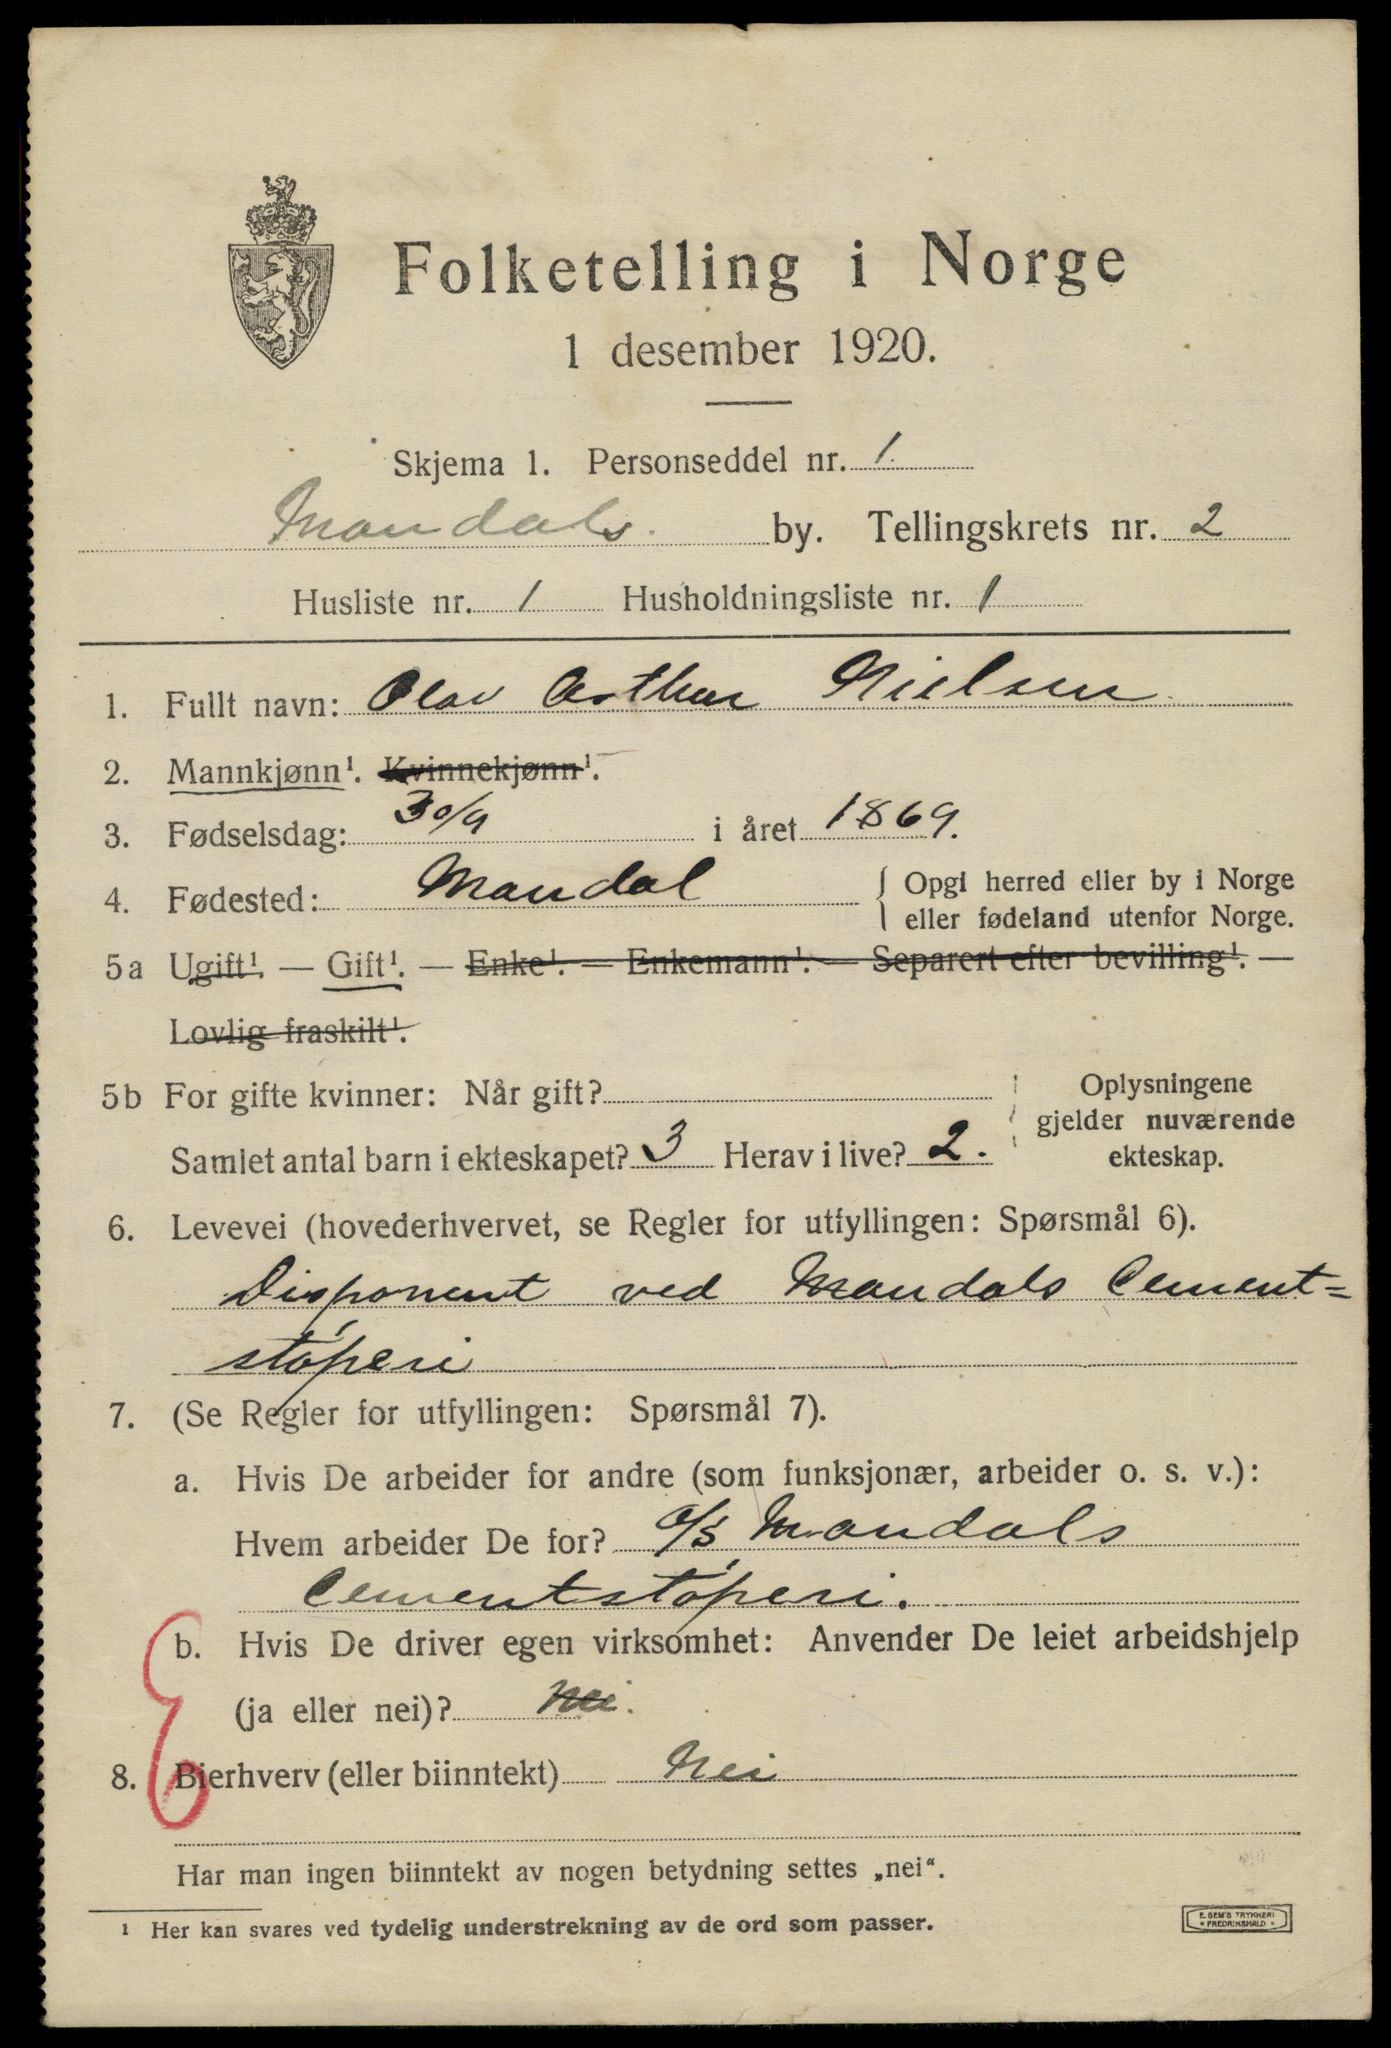 Folketelling i Norge
1 desember 1920.
Skjema 1. Personseddel nr. 1
Mandals by. Tellingskrets nr. 2
Husliste nr. 1 Husholdningsliste nr. 1
1. Fullt navn: Olav Arthur Nielsen
2. Mannkjønn¹. Kvinnekjønn¹.
3. Fødselsdag: 30/9 i året 1869.
4. Fødested: Mandal { Opgi herred eller by i Norge
eller fødeland utenfor Norge.
5a Ugift¹. — Gift¹. — Enke¹. — Enkemann¹. — Separert efter bevilling¹. —
Lovlig fraskilt¹.
5b For gifte kvinner: Når gift?
Samlet antal barn i ekteskapet? 3 Herav i live? 2.
Oplysningene
gjelder nuværende
ekteskap.
6. Levevei (hovederhvervet, se Regler for utfyllingen: Spørsmål 6).
Disponent ved Mandals Cement=
støperi
7. (Se Regler for utfyllingen: Spørsmål 7).
a. Hvis De arbeider for andre (som funksjonær, arbeider o. s. v.):
Hvem arbeider De for? A/S Mandals
Cementstøperi.
b. Hvis De driver egen virksomhet: Anvender De leiet arbeidshjelp
(ja eller nei)? Nei.
8. Bierhverv (eller biinntekt) Nei
Har man ingen biinntekt av nogen betydning settes „nei“.
¹ Her kan svares ved tydelig understrekning av de ord som passer.
E. SEM'S TRYKKERI
FREDRIKSHALD